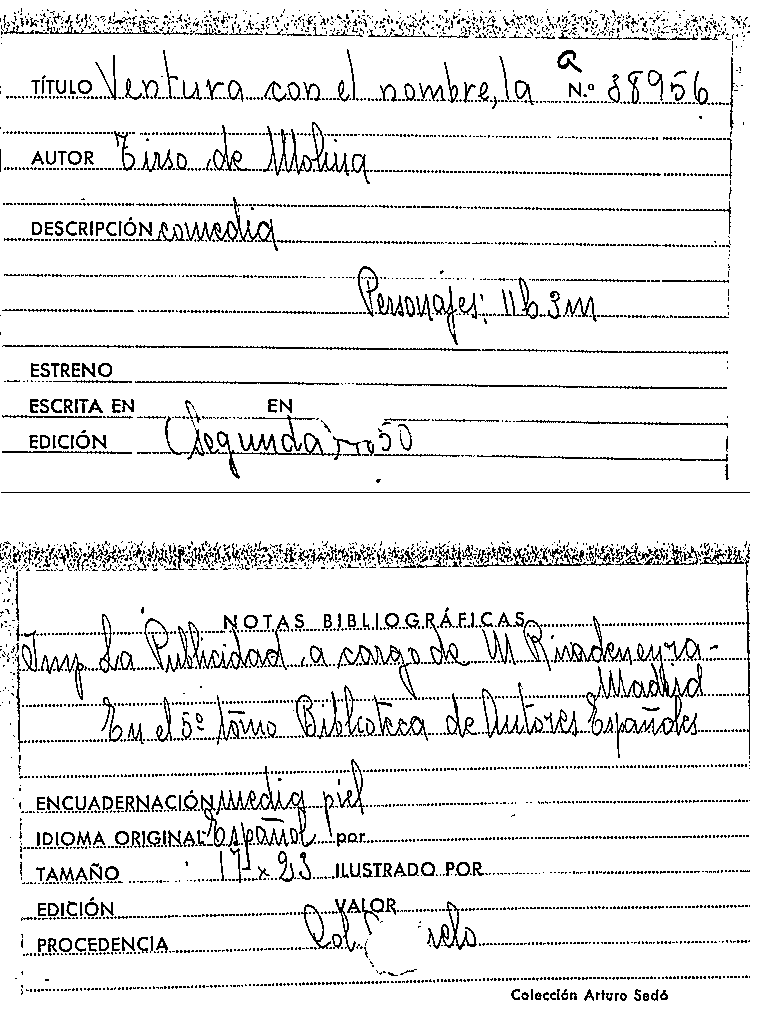 a
TÍTULO Ventura con el nombre, la N.º 38956
AUTOR Tirso de Molina
DESCRIPCIÓN comedia
Personajes: 11h 3m
ESTRENO
ESCRITA EN EN
EDICIÓN Segunda 50
NOTAS BIBLIOGRÁFICAS
Imp La Publicidad a cargo de M Rivadeneyra-
Madrid
En el 5º tomo Biblioteca de Autores Españoles
ENCUADERNACIÓN media piel
IDIOMA ORIGINAL Español por
TAMAÑO 17 x 23 ILUSTRADO POR
EDICIÓN VALOR
PROCEDENCIA Col
Colección Arturo Sedó